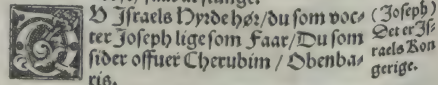 DV Jsraels Hyrde hør/du som voc⸗
ter Joseph lige som Faar/Du som
sider offuer Cherubim / Obenba⸗
ris.
(Joseph)
Det er Js⸗
raels Kon
gerige.